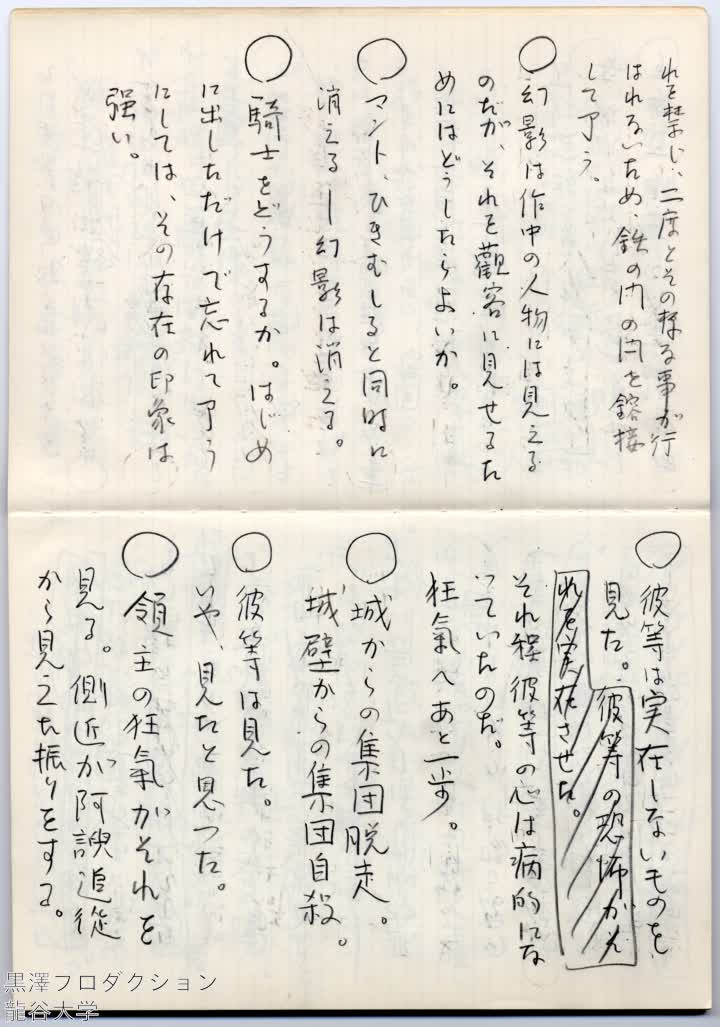 れを禁じ、二度とその様な事が行
はれないため、鉄の門の閂を鎔接
して了う。
○幻影は作中の人物には見える
のだが、それを觀客に見せるた
めにはどうしたらよいか。
○マント、ひきむしると同時に
消える―幻影は消える。
○騎士をどうするか。はじめ
に出しただけで忘れて了う
にしては、その存在の印象は
強い。
○彼等は実在しないものを
見た。彼等の恐怖がそ
れを実在させた。
それ程彼等の心は病的にな
っていたのだ。
狂氣へあと一歩。
○城からの集団脱走。
城壁からの集団自殺。
○彼等は見た。
いや、見たと思つた。
○領主の狂氣がそれを
見る。側近が阿諛追從
から見えた振りをする。
黒澤プロダクション
龍谷大学